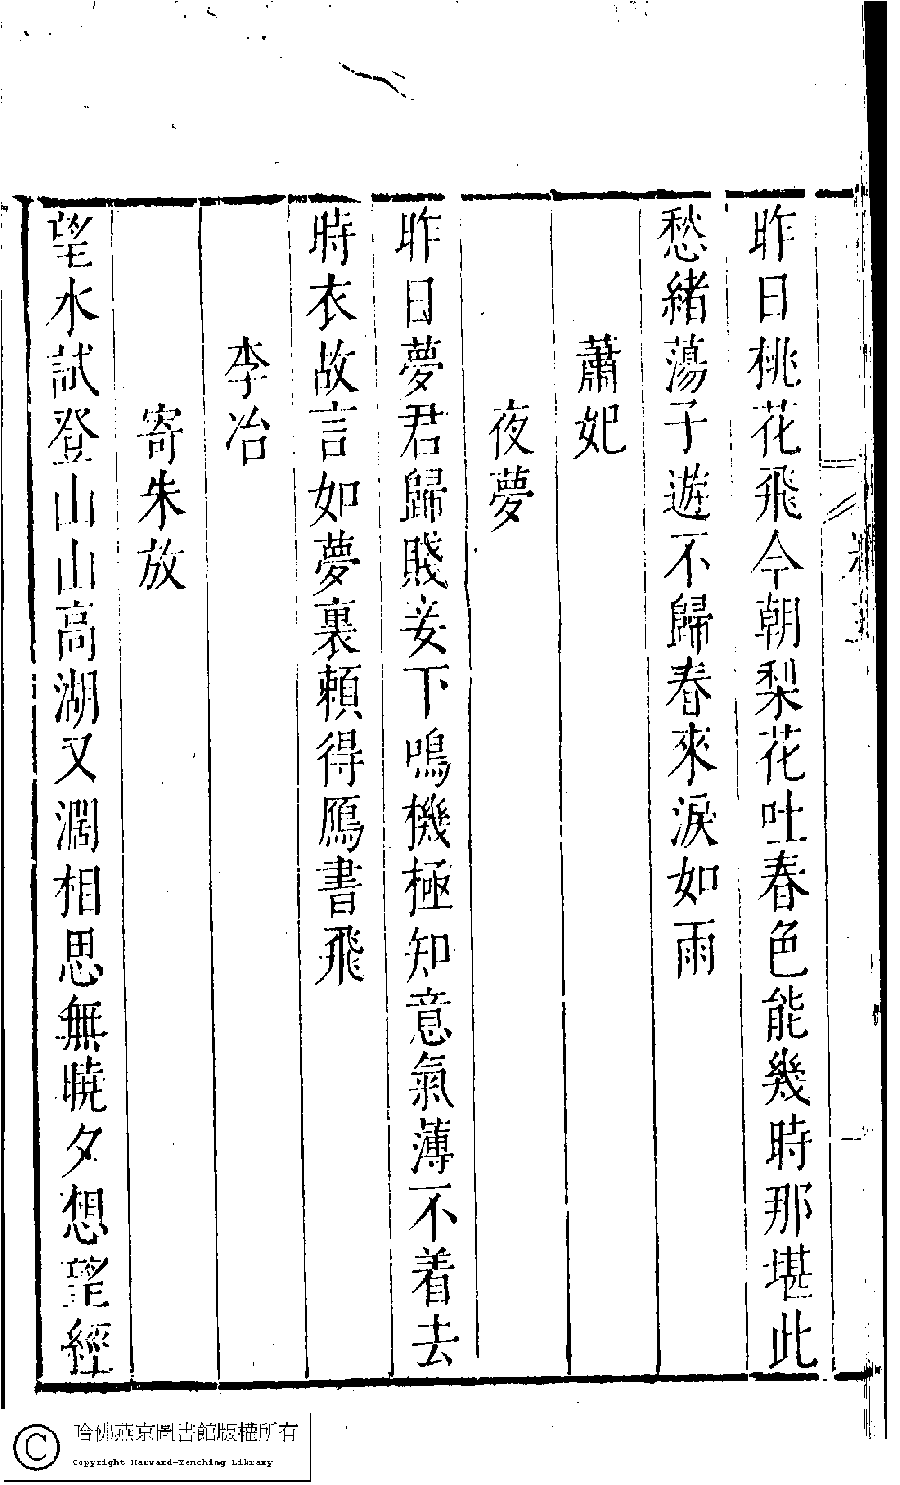 昨日桃花飛今朝梨花吐春色能幾時那堪此
愁緒蕩子遊不歸春來淚如雨
蕭妃
夜夢
昨日夢君歸賤妾下鳴機極知意氣薄不着去
時衣故言如夢裏賴得鴈書飛
李冶
寄朱放
望水試登山山高湖又濶相思無曉夕想望經
哈佛燕京圖書館版權所有
Copyright Harvard-Yenching Library